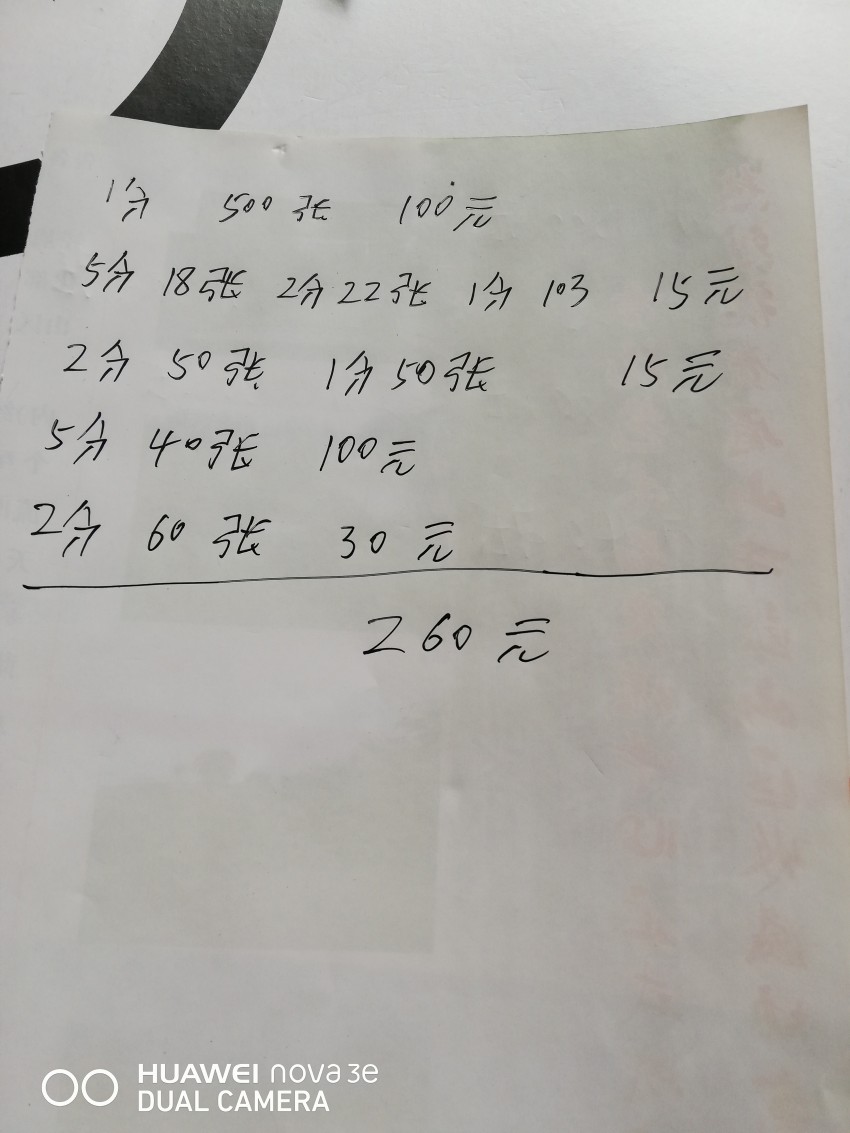 1分 500张 100元
5分 18张 2分22张 1分 103 15元
2分 50张 1分50张 15元
5分 40张 100元
2分 60张 30元
260元
HUAWEI nova 3e
DUAL CAMERA